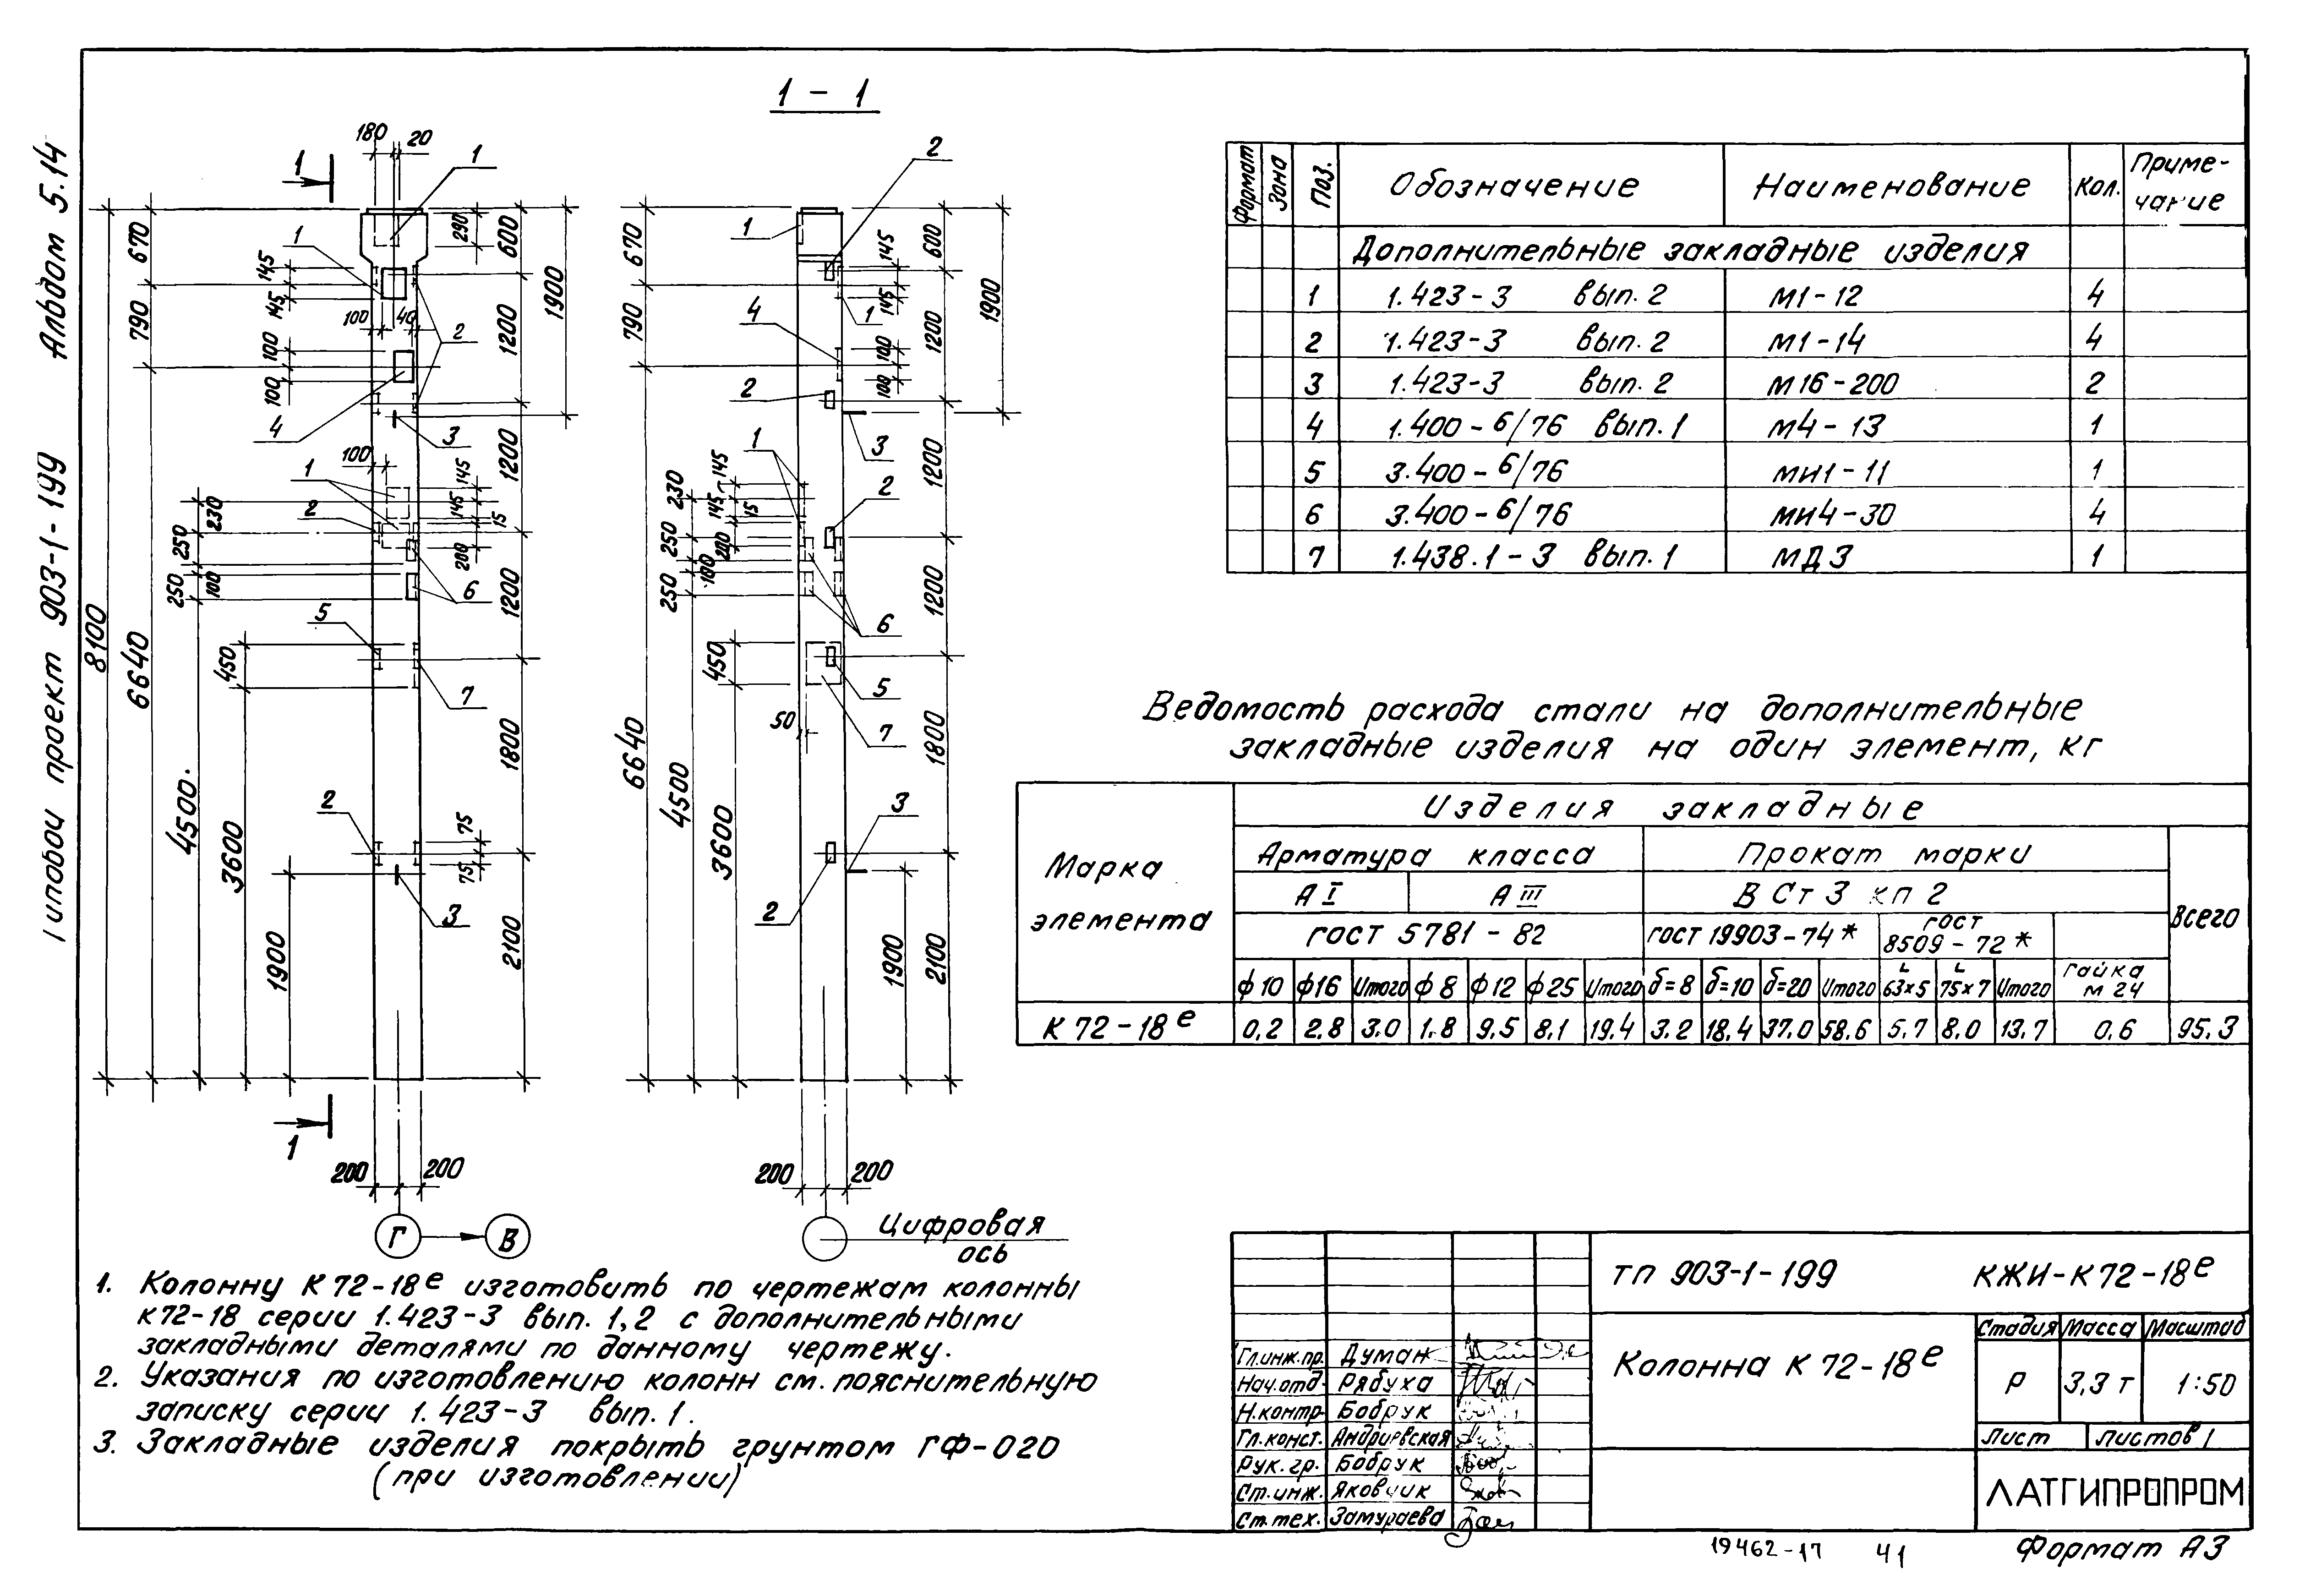 Альбом 5.14
Типовой проект 903-1-199
1 - 1
180 20
1
1
1
2
3
4
1
2
6
5
7
2
3
1
8100
670
790
6640
4500.
3600
1900
145
145
100
100
100 40
290
600
1200
1900
1200
1200
1800
2100
100
145
145
15
200
230
250
250
100
450
75
75
200 200
Г В
2
1
1
4
2
3
1
2
6
5
7
3
2
670
790
6640
4500
3600
145
145
100
100
600
1200
1900
1200
1200
1800
2100
1900
230
145
145
15
250
200
100
250
450
50
200 200
Цифровая
ось
Формат Зона Поз. Обозначение Наименование Кол. Приме-
чание
Дополнительные закладные изделия
1 1.423-3 вып. 2 М1-12 4
2 1.423-3 вып. 2 М1-14 4
3 1.423-3 вып. 2 М16-200 2
4 1.400-6/76 вып. 1 М4-13 1
5 3.400-6/76 МИ1-11 1
6 3.400-6/76 МИ4-30 4
7 1.438.1-3 вып. 1 МД3 1
Ведомость расхода стали на дополнительные
закладные изделия на один элемент, кг
Марка
элемента
Изделия закладные
Арматура класса Прокат марки
А I А III В Ст 3 кп 2
Всего
ГОСТ 5781-82 ГОСТ 19903-74* ГОСТ
8509-72*
ф10 ф16 Итого ф8 ф12 ф25 Итого δ=8 δ=10 δ=20 Итого L 63×5 L 75×7 Итого Гайка М 24
К 72-18е 0.2 2.8 3.0 1.8 9.5 8.1 19.4 3.2 18.4 37.0 58.6 5.7 8.0 13.7 0.6 95.3
1. Колонну К 72-18е изготовить по чертежам колонны
К72-18 серии 1.423-3 вып. 1,2 с дополнительными
закладными деталями по данному чертежу.
2. Указания по изготовлению колонн см. пояснительную
записку серии 1.423-3 вып. 1.
3. Закладные изделия покрыть грунтом ГФ-020
(при изготовлении)
ТП 903-1-199 КЖИ-К72-18е
Колонна К 72-18е
Стадия Масса Масштаб
Р 3,3 т 1:50
Лист Листов 1
ЛАТГИПРОПРОМ
Гл.инж.пр. Думан
Нач.отд. Рябуха
Н.контр. Бобрук
Гл.конст. Андриевская
Рук.гр. Бобрук
Ст.инж. Яковчик
Ст.тех. Замураева
19462-17 41 Формат А3